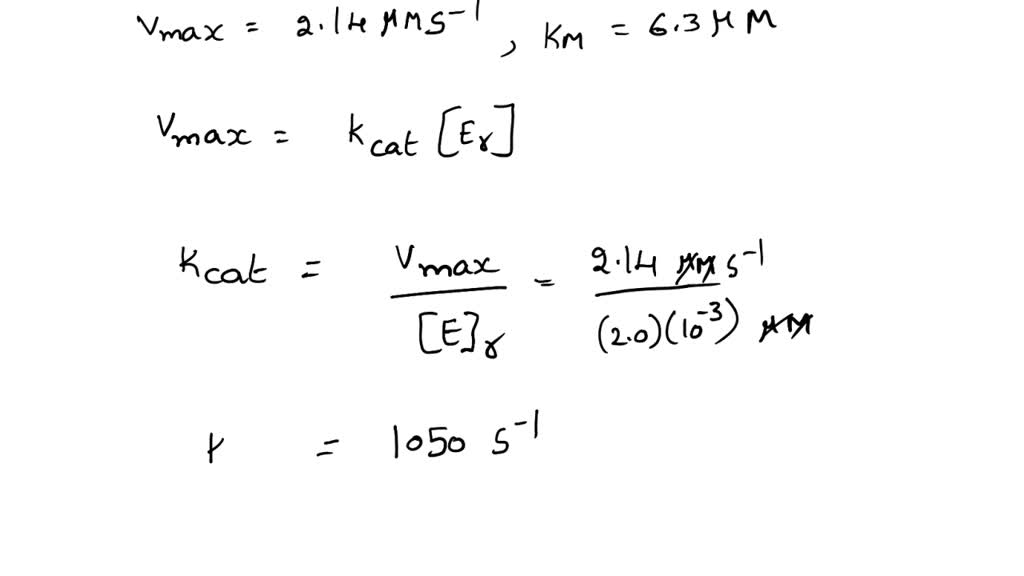 Vmax = 2.14 μMS⁻¹ , KM = 6.3 μM
Vmax = kcat [Eγ]
Kcat = Vmax / [E]γ = 2.14 μM s⁻¹ / (2.0)(10⁻³) μM
= 1050 S⁻¹